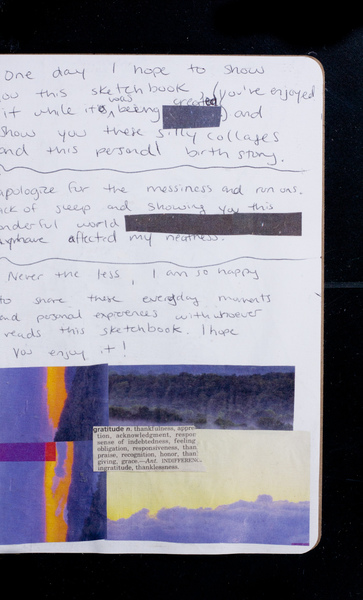 One day I hope to show
you this sketchbook (you've enjoyed
it while it was being created) and
show you these silly collages
and this personal birth story.
apologize for the messiness and run ons.
lack of sleep and showing you this
wonderful world
may have affected my neatness.
Never the less, I am so happy
to share these everyday moments
and personal experiences with whoever
reads this sketchbook. I hope
you enjoy it!
gratitude n. thankfulness, appre-
tion, acknowledgment, respon
sense of indebtedness, feeling
obligation, responsiveness, than
praise, recognition, honor, than
giving, grace.—Ant. INDIFFEREN
ingratitude, thanklessness.